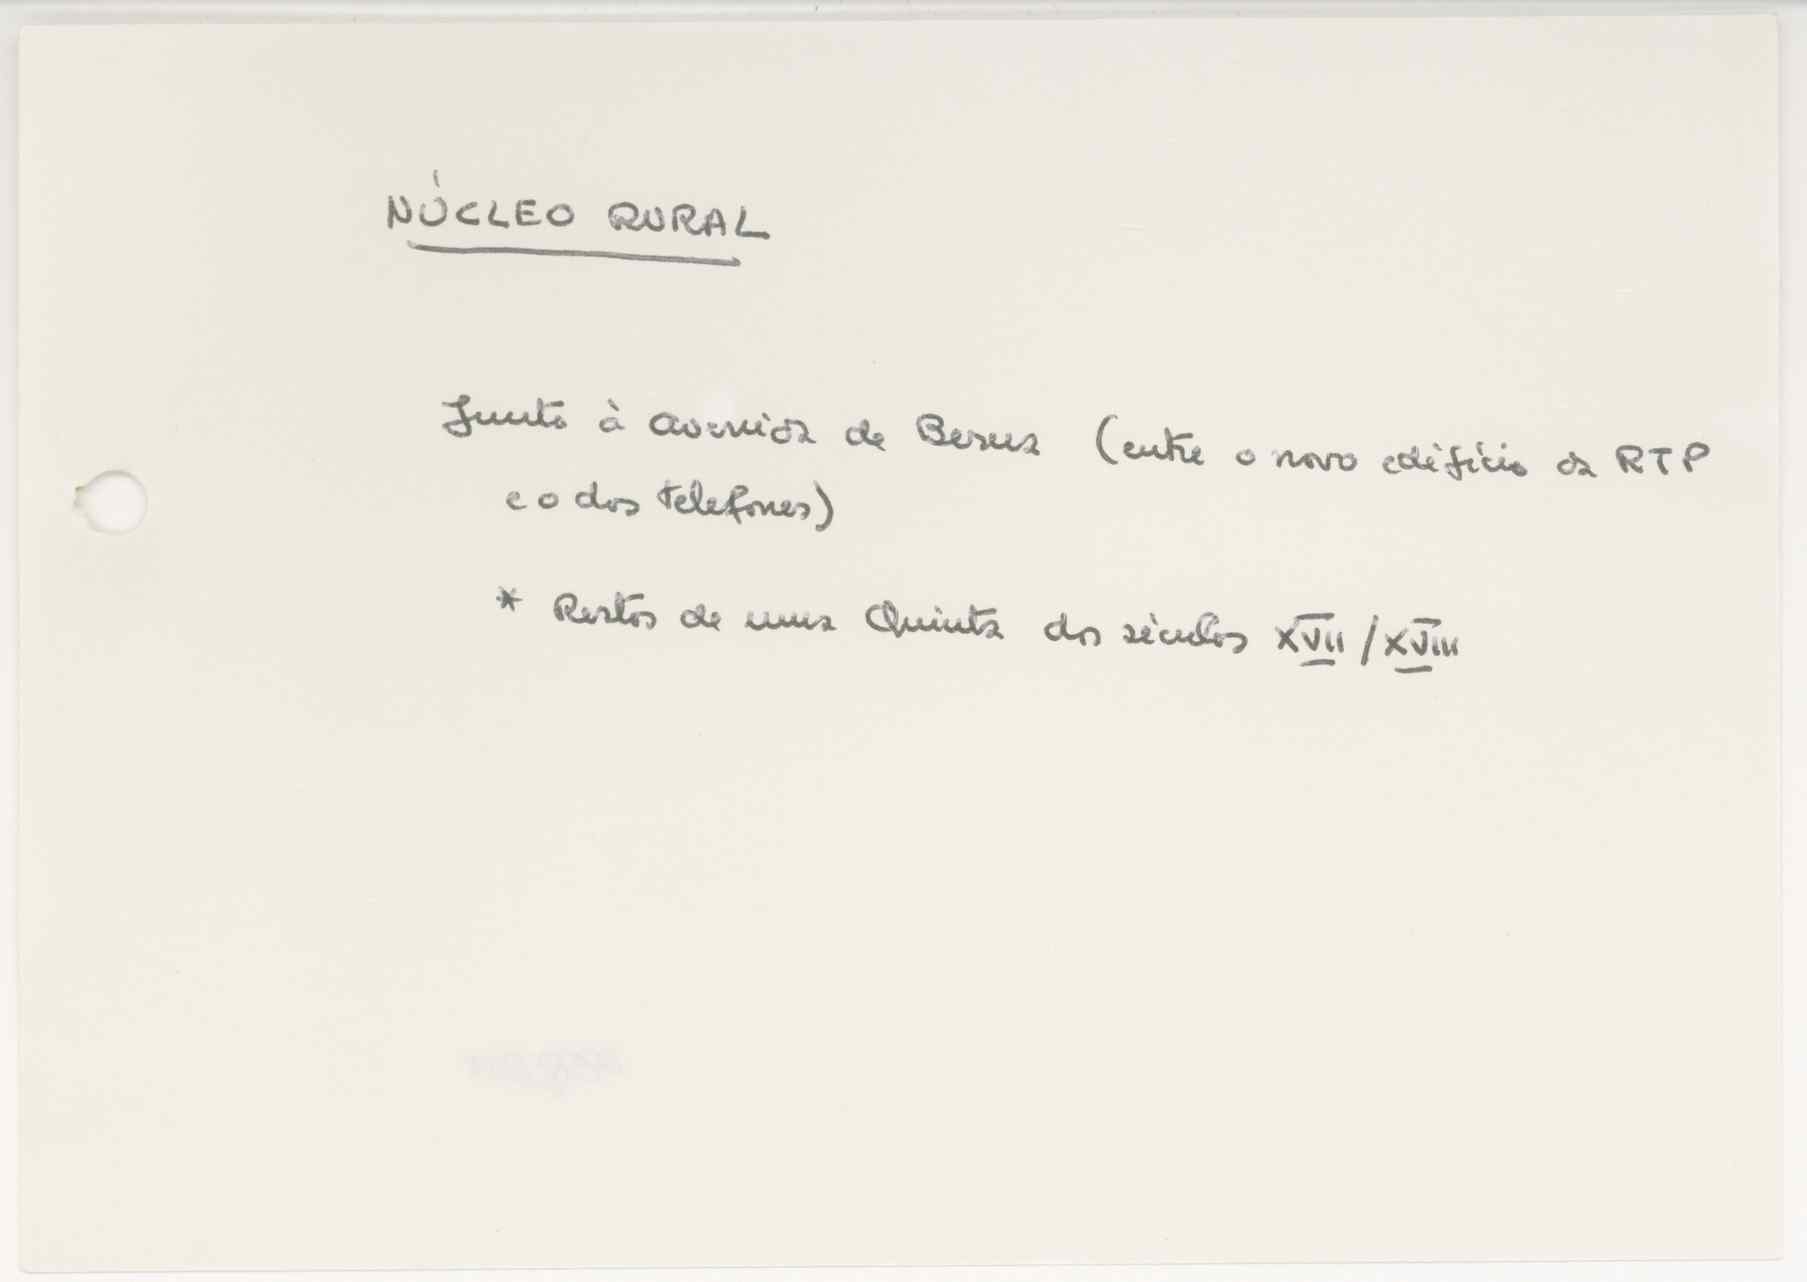 NÚCLEO RURAL
Junto à avenida de Berna (entre o novo edifício da RTP
e o dos telefones)
* Restos de uma Quinta dos séculos XVII / XVIII